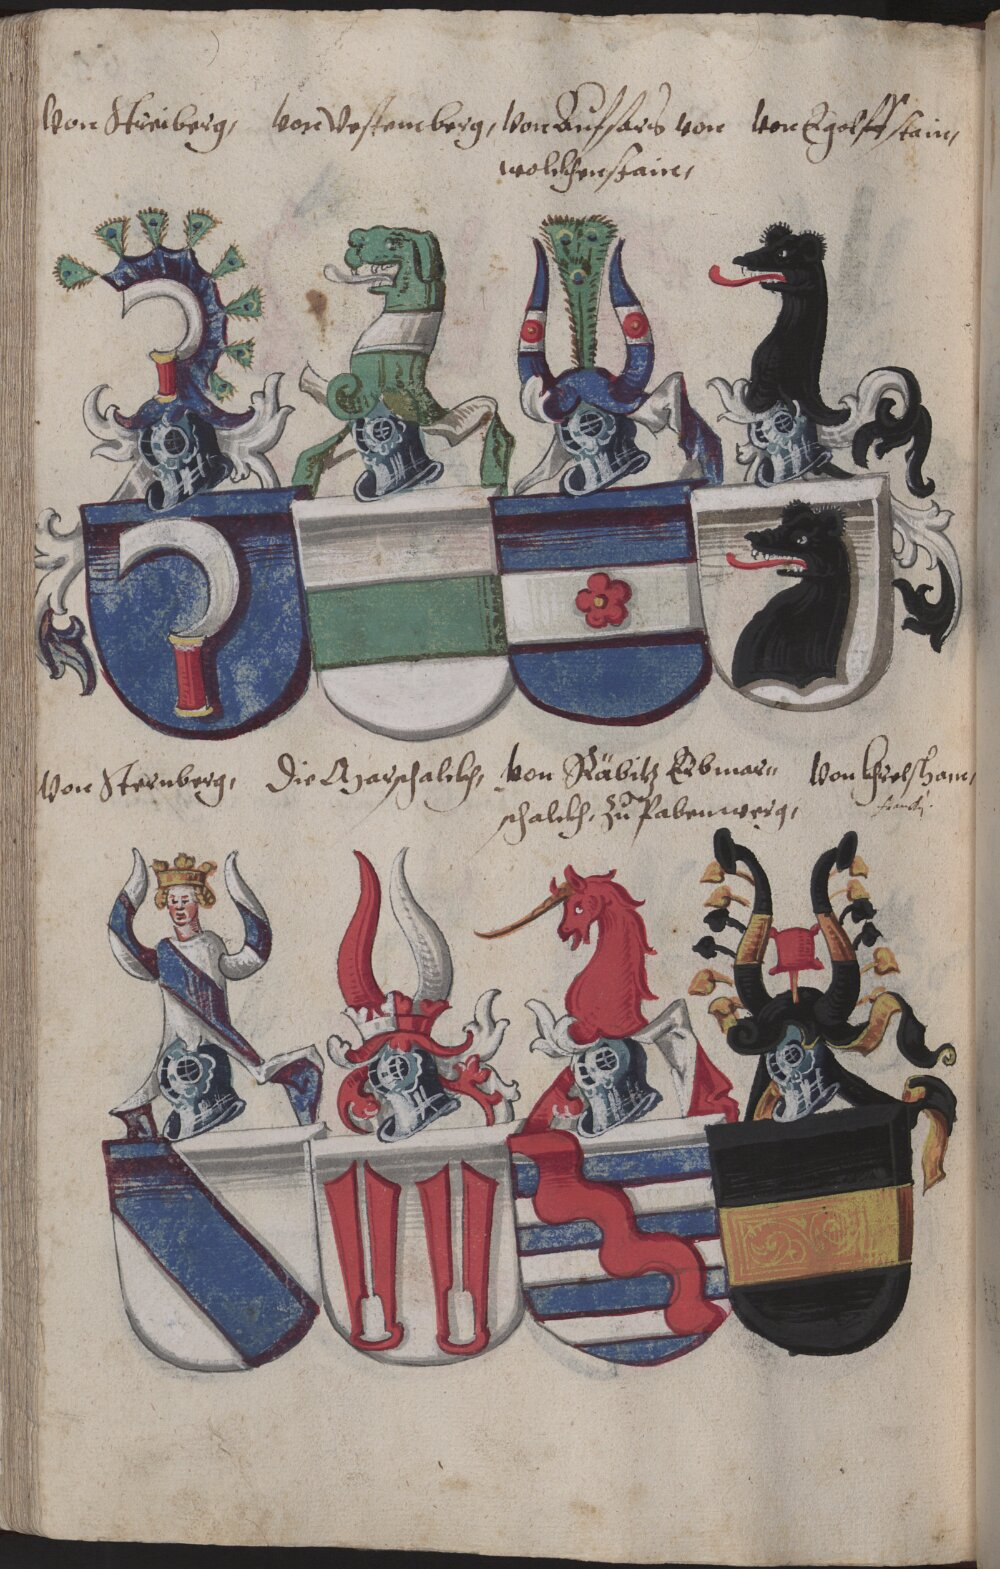 Von Streiberg,
von Vestemberg,
Von Aufsaes von
wolckhenstain,
Von Egolffstain,
Von Sternberg,
Die Marschalckh,
Von Räbitz Erbmar=
schalckh, zu Pabenwerg,
Von